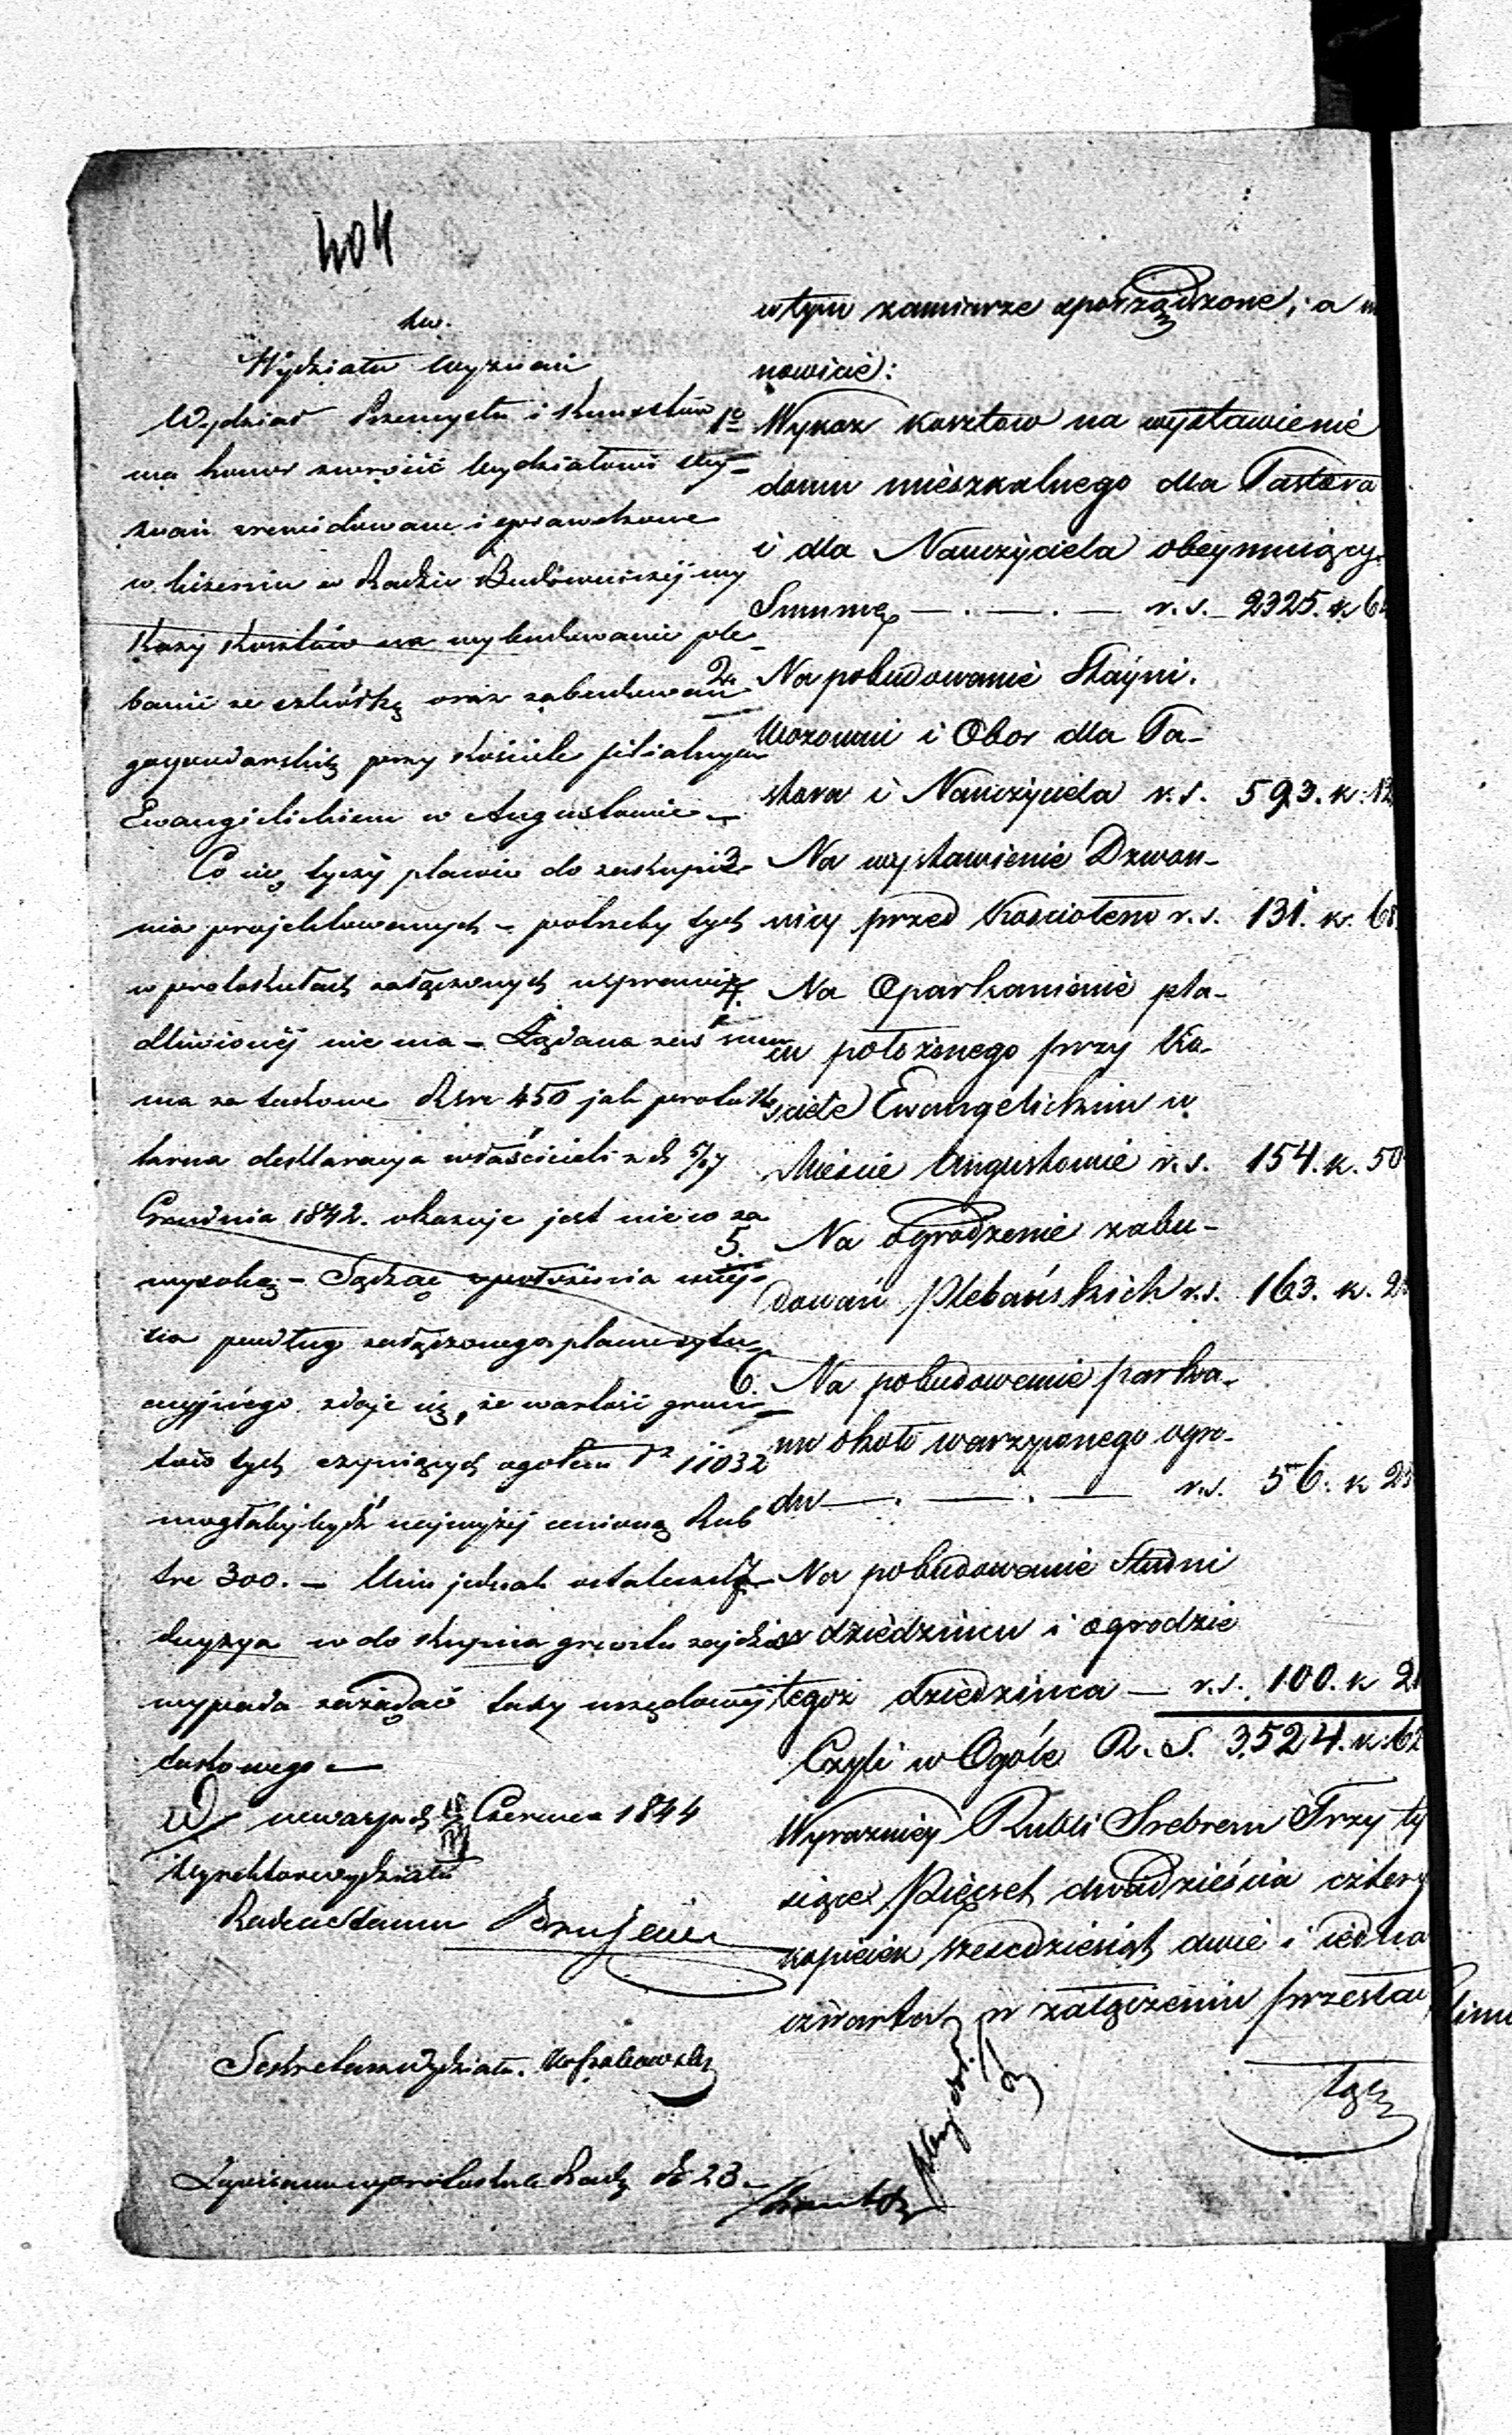 404
do
Wydziału Wyznań
Wydział Przemysłu i Kunsztów
ma honor zwrócić Wydziałowi Wy-
znań zrewidowane i sprawdzone
w Radzie Budowniczej wy
kazy kosztów na wybudowanie ple-
banii ze szkółką oraz zabudowań
gospodarskich przy kościele filialnym
Ewangielickiem w Augustowie –
Co się tyczy placów do zakupie
nia projektowanych – potrzeby tych
w protokułach załączonych usprawie
dliwionéj nie ma – Żądana zaś sum
ma za takowe Rsr 450 jak protoku
larna deklaracya właścicieli z d 5/17
Grudnia 1842. okazuje jest nieco za
wysoką – Sądząc położenia miej-
sca podług załączonego planu sytu-
acyjnego zdaje się, że wartość grun-
tów tych czyniących ogółem 11032
mogłaby być najwyżej cenioną Rub
sre 300. – jednak
decyzya co do kupna gruntu zajdzie
wypada zażądać taxy urzędowéj
takowego –
w Czerwca 1844
Dyrektor Wydziału
Radca Stanu
Sekretarz Wydziału.
Zapisano w protokule Rady № 23 –
w tym zamiarze sporządzone, a m
nowicie:
1º Wykaz kosztów na wystawienie
domu mieszkalnego dla Pastora
i dla Nauczyciela obeymuiący
Summę — . — . — r.s. 2325. k 6
2. Na pobudowanie Stayni.
Wozowni i Obor dla Pa-
stora i Nauczyciela r.s. 593. k. 12
3. Na wystawienie Dzwon-
nicy przed Kościołem r.s. 131. k. 68
4. Na Oparkanienie pla-
cu położonego przy Ko-
sciele Ewangelickim w
Mieście Augustowie r.s. 154. k. 50
5. Na ogrodzenie zabu-
dowań Plebańskich r.s. 163. k. 2
6. Na pobudowanie parka-
nu około warzywnego ogro-
du — . — . — r.s. 56. k 25
7. Na pobudowanie Studni
w dziedzincu i ogrodzie
tegoż dziedzinca — r.s. 100. k 2
Czyli w Ogóle R. S. 3,524. k. 62
Wyrazniey Rubli Srebrem Trzy ty
siące Pięćset dwadzieścia cztery
kopieiek szescdziesiąt dwie i iedna
czwarta w załączeniu przesła